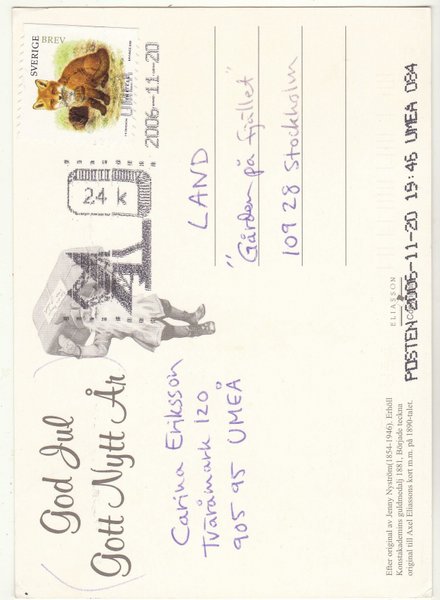 God Jul
Gott Nytt År
Carina Eriksson
Tvåråmark 120
905 95 UMEÅ
SVERIGE BREV
UMEÅ
2006-11-20
24 k
LAND
"Gården på fjället"
109 28 Stockholm
Efter original av Jenny Nyström(1854-1946). Erhöll
Konstakademins guldmedalj 1881, Började teckna
original till Axel Eliassons kort m.m. på 1890-talet.
ELIASSON
POSTEN 2006-11-20 19:46 UMEA 084